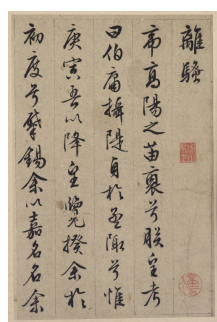 離騷
帝高陽之苗裔兮朕皇考
曰伯庸攝提貞於孟陬兮惟
庚寅吾以降皇覽揆余於
初度兮肇錫余以嘉名名余